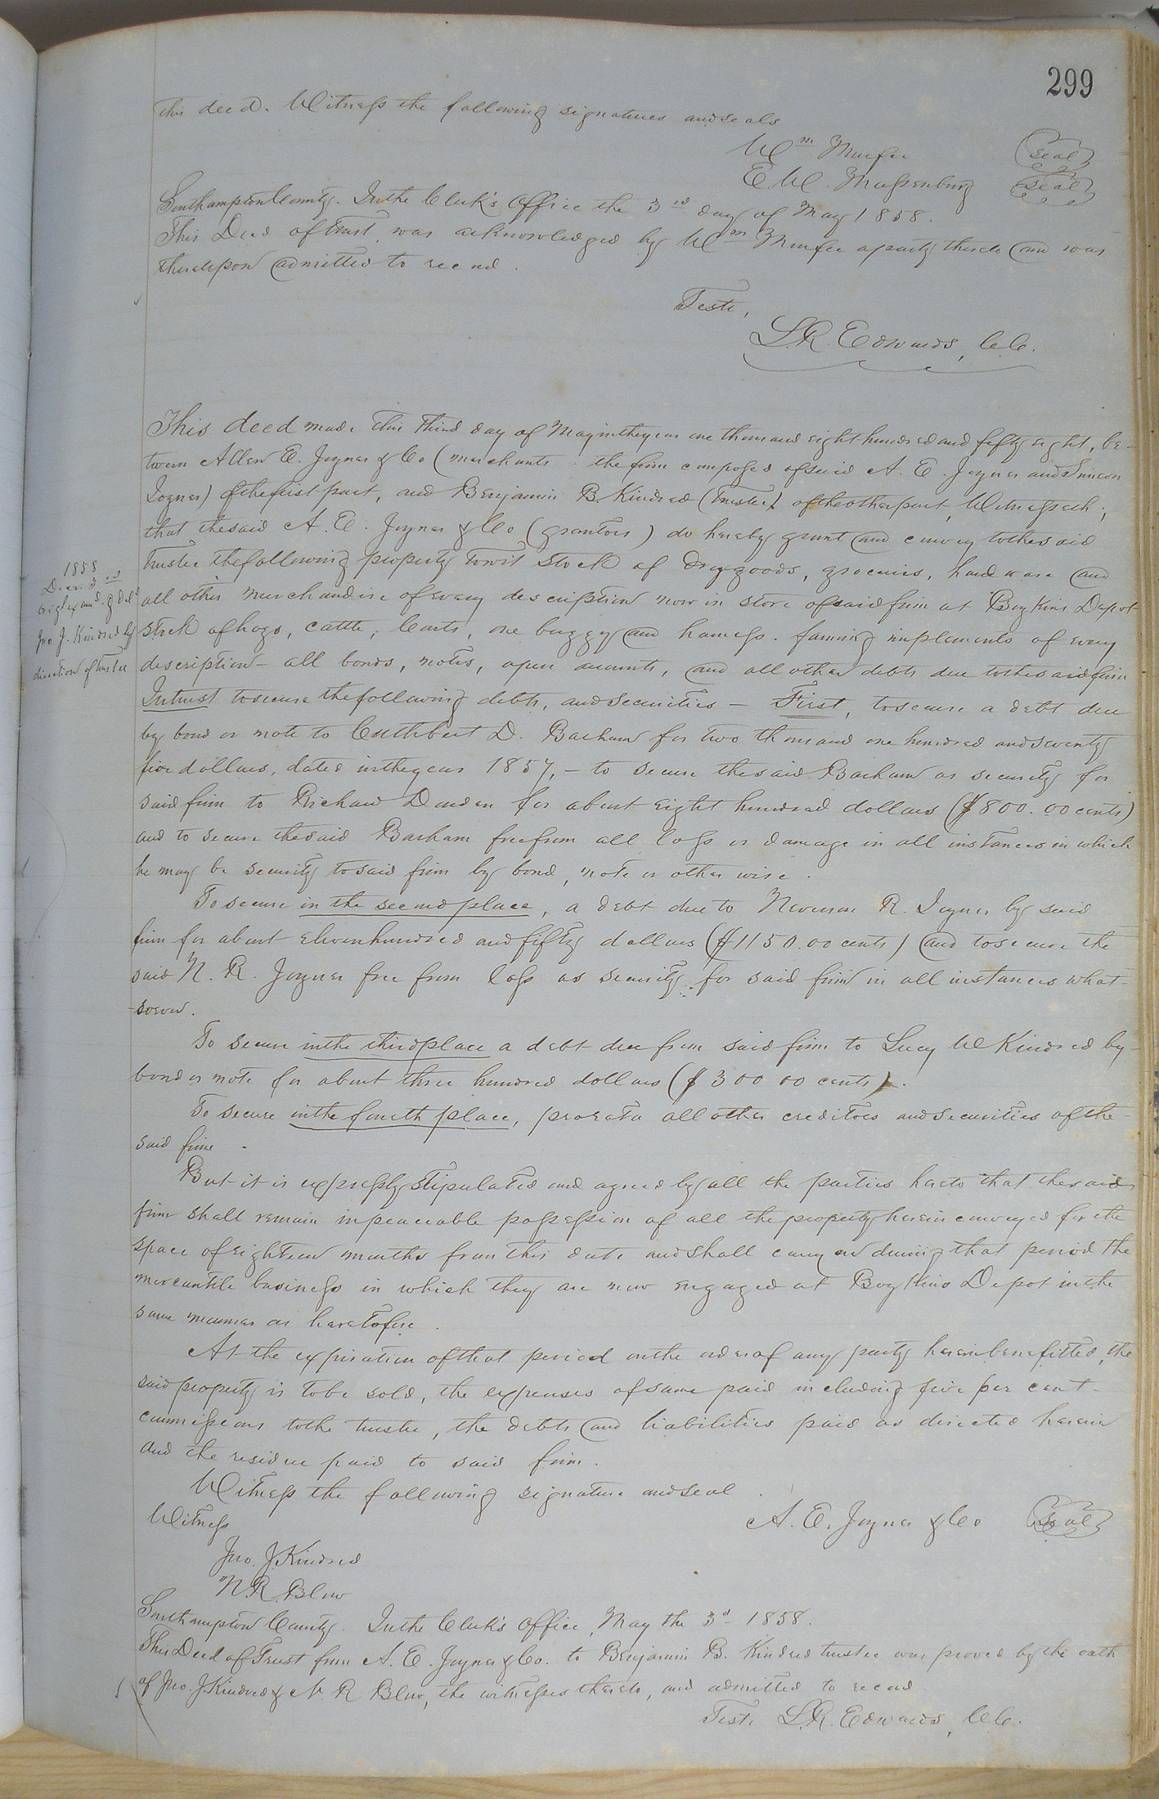 299
this deed. Witness the following signatures and seals
Wm Murfee (seal)
E. W. Massenburg (seal)
Southampton County. In the Clerk's Office the 3rd day of May 1858.
This Deed of Trust was acknowledged by Wm Murfee a party thereto and was
thereupon admitted to record.
Teste,
L. R. Edwards, C.C.
This deed made this third day of May in the year one thousand eight hundred and fifty eight, be-
tween Allen E. Joyner & Co (merchants the firm composed of said A. E. Joyner and
Joyner) of the first part, and Benjamin B. Kindred (trustee) of the other part, Witnesseth;
that the said A. E. Joyner & Co (grantors) do hereby grant and convey to the said
trustee the following property to wit Stock of dry goods, groceries, hard ware and
all other merchandise of every description now in store of said firm at Boykins Depot
stock of hogs, cattle, carts, one buggy and harness. farming implements of every
description - all bonds, notes, open accounts, and all other debts due to the said firm
In trust to secure the following debts, and securities - First, to secure a debt due
by bond or note to Cuthbert D. Barham for two thousand one hundred and seventy
five dollars, dated in the year 1857, - to secure the said Barham as security for
said firm to Richard Darden for about eight hundred dollars ($800.00 cents)
and to secure the said Barham free from all loss or damage in all instances in which
he may be security to said firm by bond, note or other wise.
To secure in the second place, a debt due to Nevison R. Joyner by said
firm for about eleven hundred and fifty dollars ($1150.00 cents) and to secure the
said N. R. Joyner free from loss as security for said firm in all instances what-
soever.
To secure in the third place a debt due from said firm to Lucy W Kindred by
bond or note for about three hundred dollars ($300 00 cents).
To secure in the fourth place, prorata all other creditors and securities of the
said firm -
But it is expressly stipulated and agreed by all the parties hereto that the said
firm shall remain in peaceable possession of all the property herein conveyed for the
space of eighteen months from this date and shall carry on during that period the
mercantile business in which they are now engaged at Boykins Depot in the
same manner as heretofore.
At the expiration of that period on the order of any party herein benefitted, the
said property is to be sold, the expenses of same paid including five per cent
commissions to the trustee, the debts and liabilities paid as directed herein
and the residue paid to said firm.
Witness the following signature and seal.
Witness A. E. Joyner & Co (seal)
Jno. J. Kindred
N R. Blow
Southampton County. In the Clerk's Office, May the 3d 1858.
This Deed of Trust from A. E. Joyner & Co. to Benjamin B. Kindred trustee was proved by the oath
of Jno J. Kindred & N. R Blow, the witnesses thereto, and admitted to record
Teste L. R. Edwards, C.C.
1858
Decr 3rd
Origl exmd. & deld
Jno J. Kindred by
direction of trustee